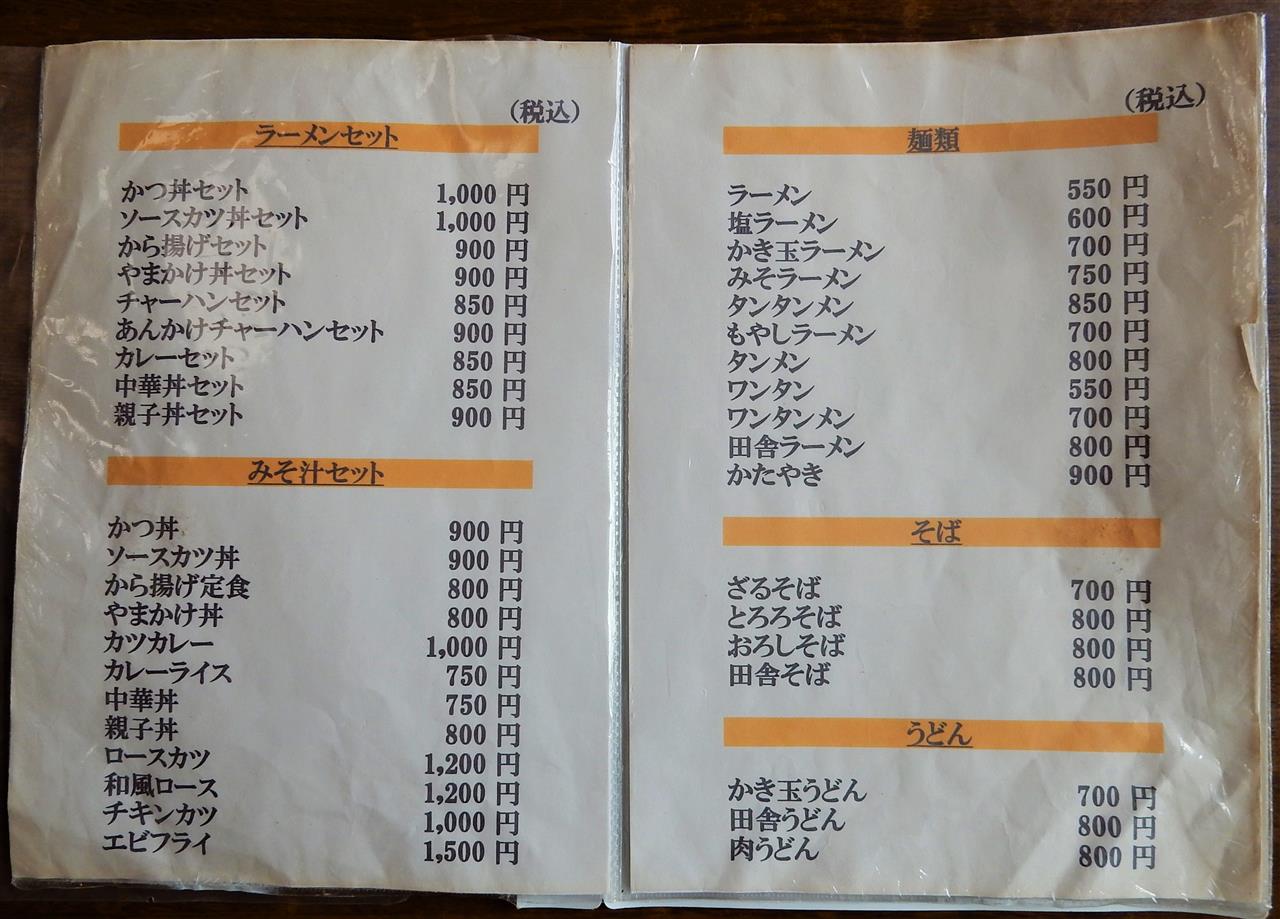 (税込)
ラーメンセット
かつ丼セット 1,000 円
ソースカツ丼セット 1,000 円
から揚げセット 900 円
やまかけ丼セット 900 円
チャーハンセット 850 円
あんかけチャーハンセット 900 円
カレーセット 850 円
中華丼セット 850 円
親子丼セット 900 円
みそ汁セット
かつ丼 900 円
ソースカツ丼 900 円
から揚げ定食 800 円
やまかけ丼 800 円
カツカレー 1,000 円
カレーライス 750 円
中華丼 750 円
親子丼 800 円
ロースカツ 1,200 円
和風ロース 1,200 円
チキンカツ 1,000 円
エビフライ 1,500 円
(税込)
麺類
ラーメン 550 円
塩ラーメン 600 円
かき玉ラーメン 700 円
みそラーメン 750 円
タンタンメン 850 円
もやしラーメン 700 円
タンメン 800 円
ワンタン 550 円
ワンタンメン 700 円
田舎ラーメン 800 円
かたやき 900 円
そば
ざるそば 700 円
とろろそば 800 円
おろしそば 800 円
田舎そば 800 円
うどん
かき玉うどん 700 円
田舎うどん 800 円
肉うどん 800 円